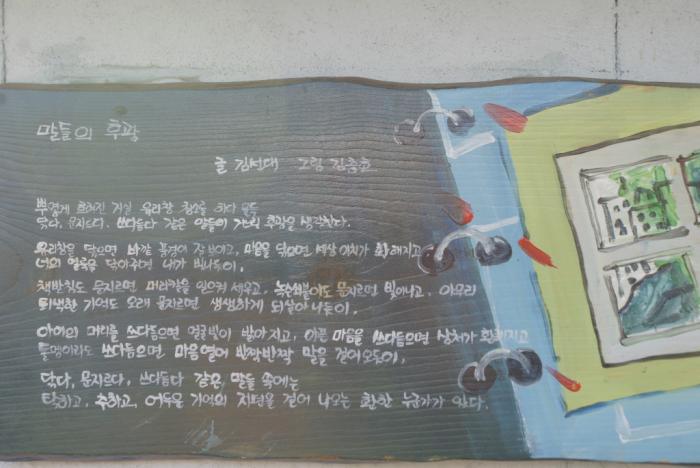 말들의 후광
글 김선태 그림 김충호
뿌옇게 흐려진 거실 유리창 청소를 하다 문득
닦다, 문지르다, 쓰다듬다 같은 말들이 간직한 후광을 생각한다.
유리창을 닦으면 바깥 풍경이 잘 보이고, 마음을 닦으면 세상 이치가 환해지고
너의 얼룩을 닦아주면 내가 빛나듯이,
책받침도 문지르면 머리칼을 일으켜 세우고, 녹슨쇠붙이도 문지르면 빛이나고, 아무리
퇴색한 기억도 오래 문지르면 생생하게 되살아나듯이,
아이의 머리를 쓰다듬으면 얼굴빛이 밝아지고, 아픈 마음을 쓰다듬으면 상처가 환해지고
돌멩이라도 쓰다듬으면 마음 열어 반짝반짝 말을 걸어오듯이,
닦다, 문지르다, 쓰다듬다 같은 말들 속에는
탁하고, 추하고, 어두운 기억의 저편을 걸어 나오는 환한 누군가가 있다.